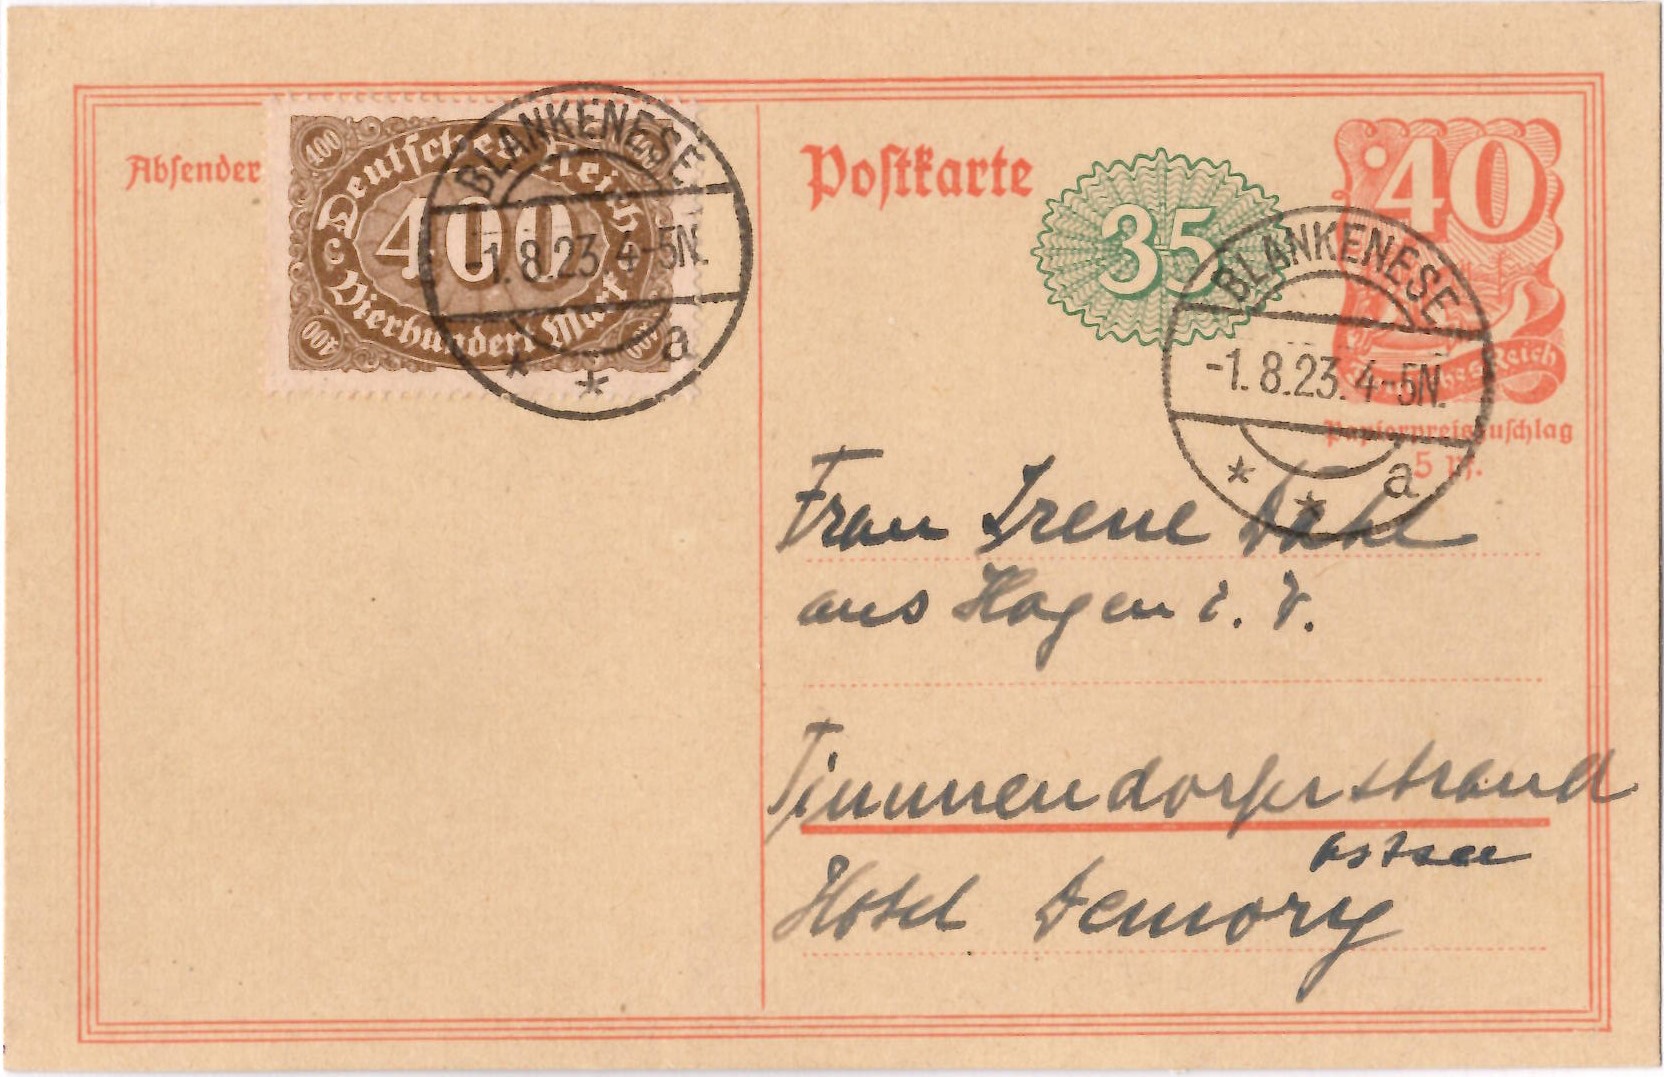 Absender
400 400
Deutsches Reich
400
Vierhundert Mark
400 400
BLANKENESE
-1.8.23.4-5N.
* * a
Postkarte
35
40
Deutsches Reich
Papierpreiszuschlag
5 Pf.
BLANKENESE
-1.8.23.4-5N.
* * a
Frau Irene Dahl
aus Hagen i. V.
Timmendorferstrand
Ostsee
Hotel Demory